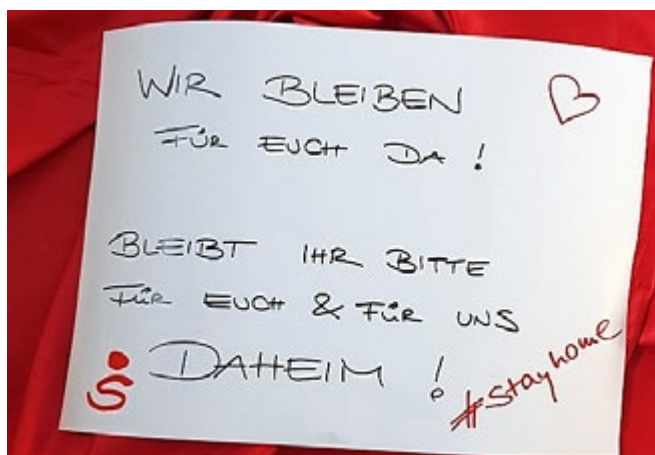 WIR BLEIBEN
FÜR EUCH DA !
BLEIBT IHR BITTE
FÜR EUCH & FÜR UNS
DAHEIM !
#stayhome